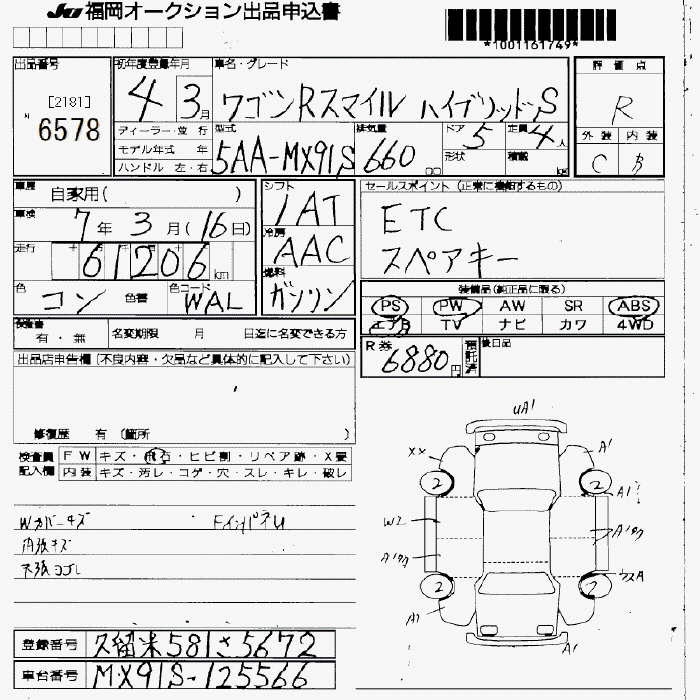 JU 福岡オークション出品申込書
*1001161749*
出品番号
[2181]
6578
初年度登録年月
4 3月
車名・グレード
ワゴンRスマイル ハイブリッドS
評価点
R
外装 内装
C B
ディーラー・並行
モデル年式 年
ハンドル 左・右
型式
5AA-MX91S
排気量
660 cc
ドア
5
形状
定員
4人
積載
kg
車歴
自家用( )
車検
7年 3月(16日)
走行
61206 km
色
コン 色替
色コード
WAL
シフト
IAT
冷房
AAC
燃料
ガソリン
セールスポイント (正常に機能するもの)
ETC
スペアキー
装備品(純正品に限る)
PS PW AW SR ABS
エアB TV ナビ カワ 4WD
検査書
有・無
名変期限 月 日迄に名変できる方
R券
6880円
預託済
後日品
出品店申告欄(不良内容・欠品など具体的に記入して下さい)
修復歴 有 (箇所 )
検査員 FW キズ・飛石・ヒビ割・リペア跡・X要
記入欄 内装 キズ・汚レ・コゲ・穴・スレ・キレ・破レ
Wカバーキズ
内張キズ
天張ヨゴレ
UA1
XX
A1
2
2
A1
W2
A1
2
2
A1
A1
登録番号 久留米581さ5672
車台番号 MX91S-125566